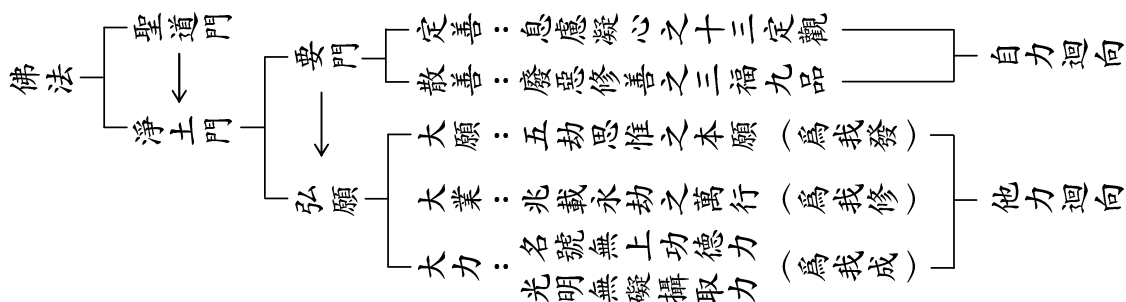 佛法
聖道門
淨土門
要門
定善：息慮凝心之十三定觀
散善：廢惡修善之三福九品
自力迴向
弘願
大願：五劫思惟之本願（為我發）
大業：兆載永劫之萬行（為我修）
大力：名號無上功德力
光明無礙攝取力
（為我成）
他力迴向